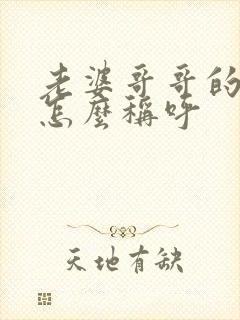 老婆哥哥的
怎麼稱呼
天地有缺